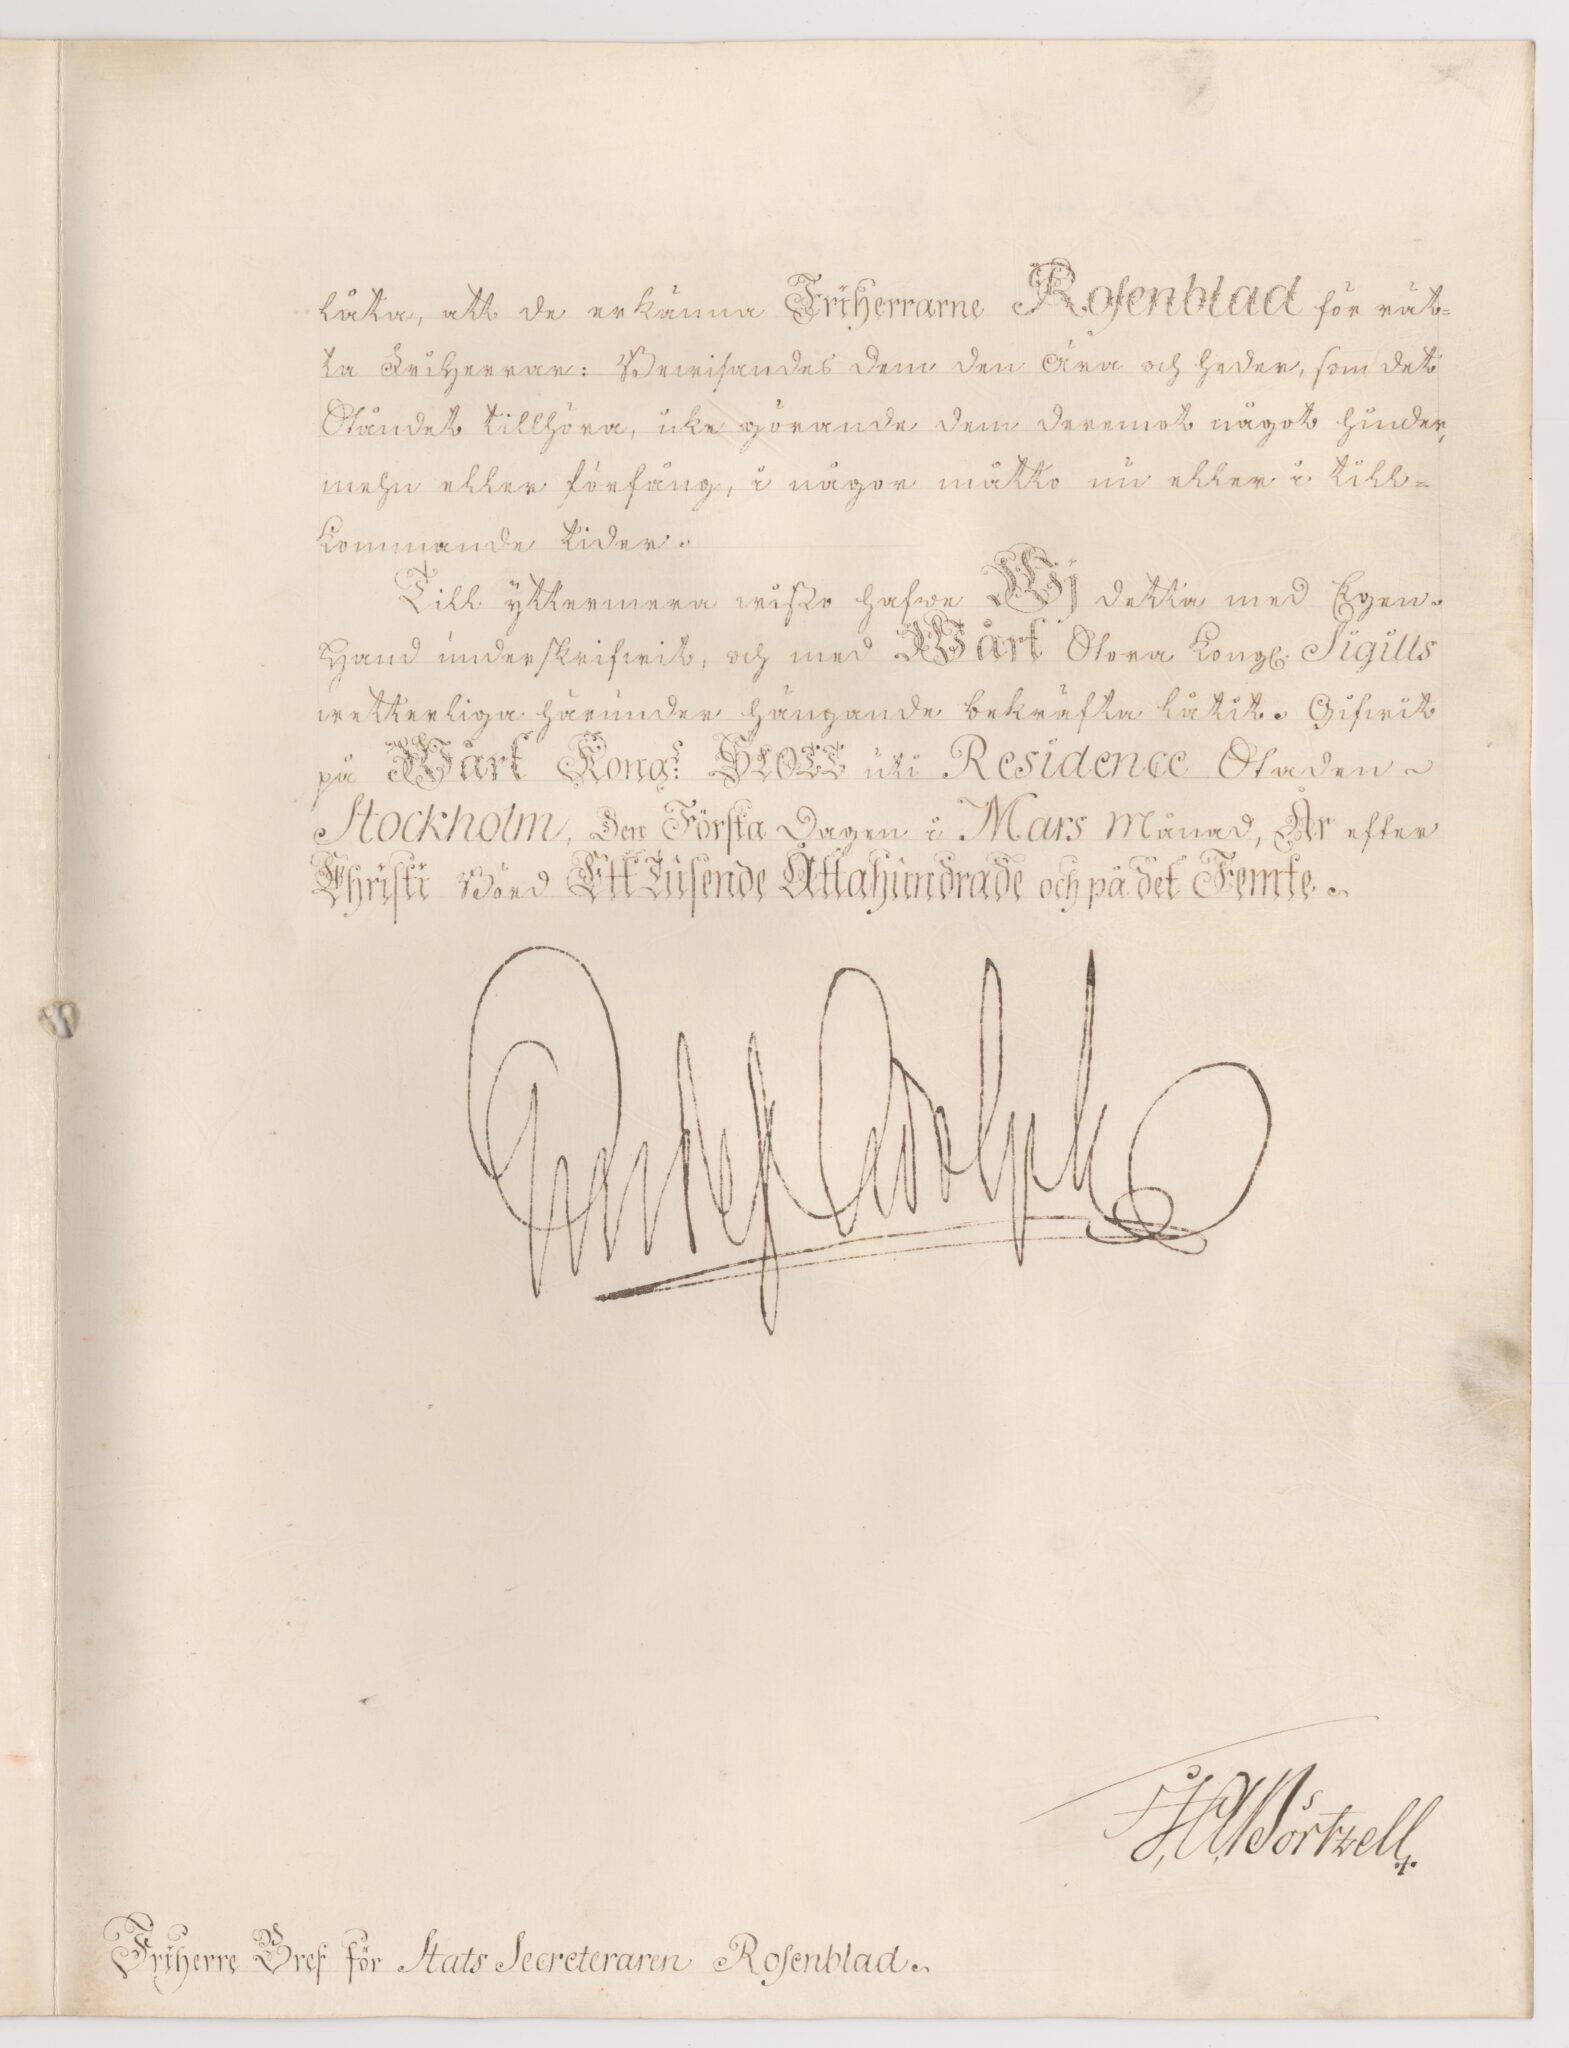 låta, att de erkänna Friherrarne Rosenblad för rät-
ta Friherrar: Bewisandes dem den Ära och heder, som det
Ståndet tillhöra, icke görande dem deremot något hinder,
mehn eller förfång, i någor måtto nu eller i till-
kommande tider.
Till yttermera wisso hafwe Wij detta med Egen
Hand underskrifwit, och med Wårt Stora Kongl. Sigills
wetterliga härunder hängande bekräfta låtit. Gifwit
på Wårt Kongl: Slott uti Residence Staden
Stockholm, Den Första Dagen i Mars Månad, År efter
Christi Börd Ett Tusende Åttahundrade och på det Femte.
Gustaf Adolph
Börtzell
Friherre Bref för Stats Secreteraren Rosenblad.